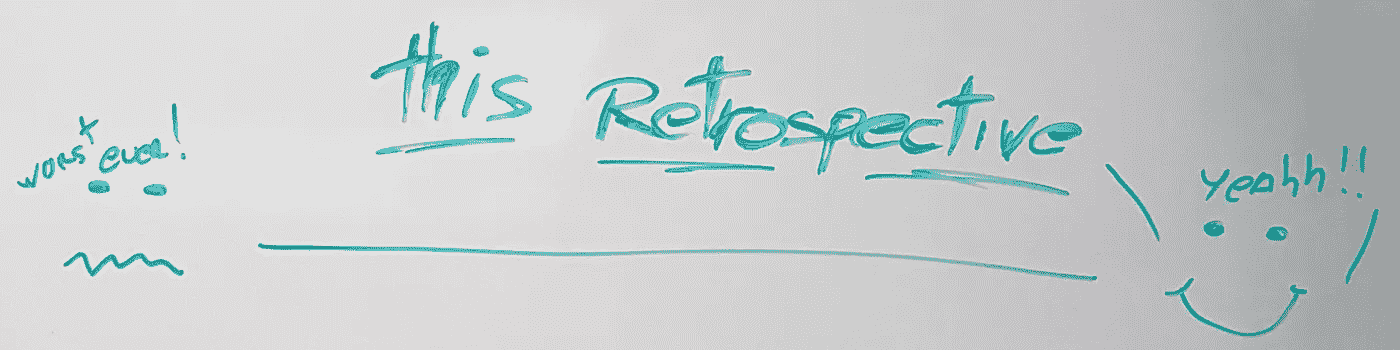 this Retrospective
worst ever!
yeahh!!